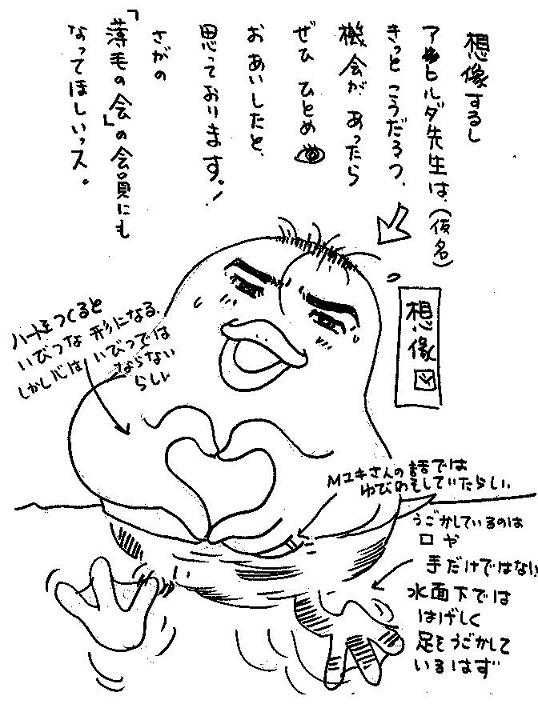 想像するし
アヒルダ先生は、(仮名)
きっと こうだろう、
機会が あったら
ぜひ ひとめ
おあいしたと、
思っております。!
さがの
「薄毛の会」の会員にも
なってほしいっス。
想像
図
ハートをつくると
いびつな 形になる、
しかし心は いびつでは
ならない
らしい
Mユキさんの話では
ゆびわをしていたらしい
うごかしているのは
口や
手だけではない
水面下では
はげしく
足をうごかして
いるはず